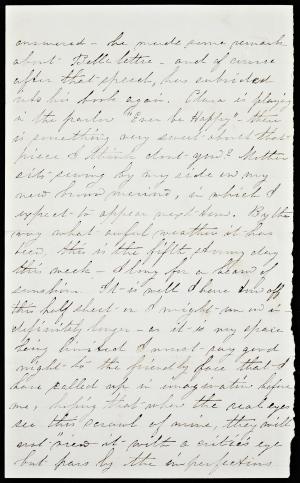 answered - he made some remark
about Belle lettre - and of course
after that speech, has subsided
into his book again. Clara is playing
in the parlor "Ever be Happy" - there
is something very sweet about that
piece I think dont you? Mother
sits sewing by my side on my
new brown merino, in which I
expect to appear next term. By the
way what awful weather it has
been, this is the fifth stormy day
this week - I long for a gleam of
sunshine. It is well I have torn off
this half sheet or I might run on in-
definitely longer - as it is my space
being limited I must say good
night to the friendly face that I
have called up in imagination before
me, hoping that when the real eyes
see this scrawl of mine, they will
not view it with a critics eye
but pass by the imperfections